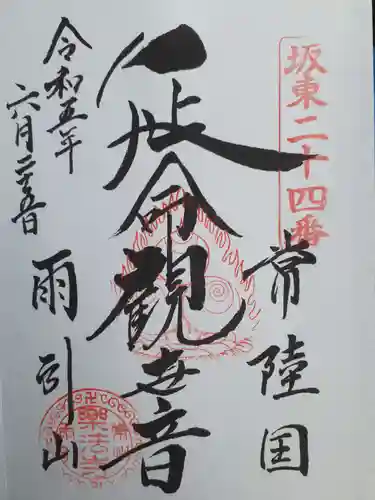 坂東二十四番
常陸国
延命觀世音
雨引山
令和五年
六月二十五日
樂法寺